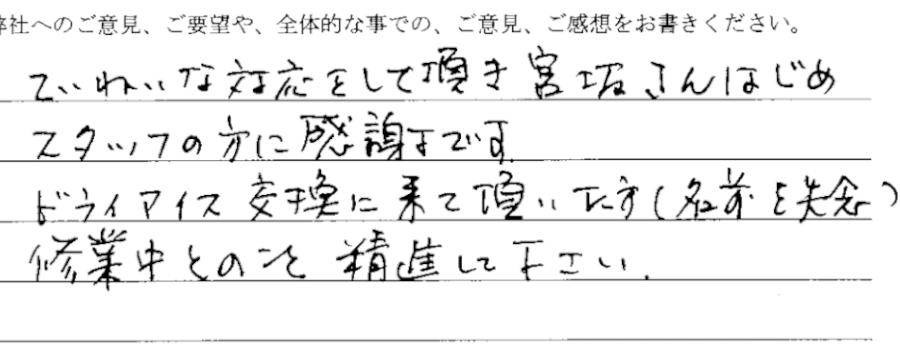 弊社へのご意見、ご要望や、全体的な事での、ご意見、ご感想をお書きください。
ていねいな対応をして頂き宮坂さんはじめ
スタッフの方に感謝です
ドライアイス交換に来て頂いた方(名前を失念)
修業中とのこと精進して下さい.